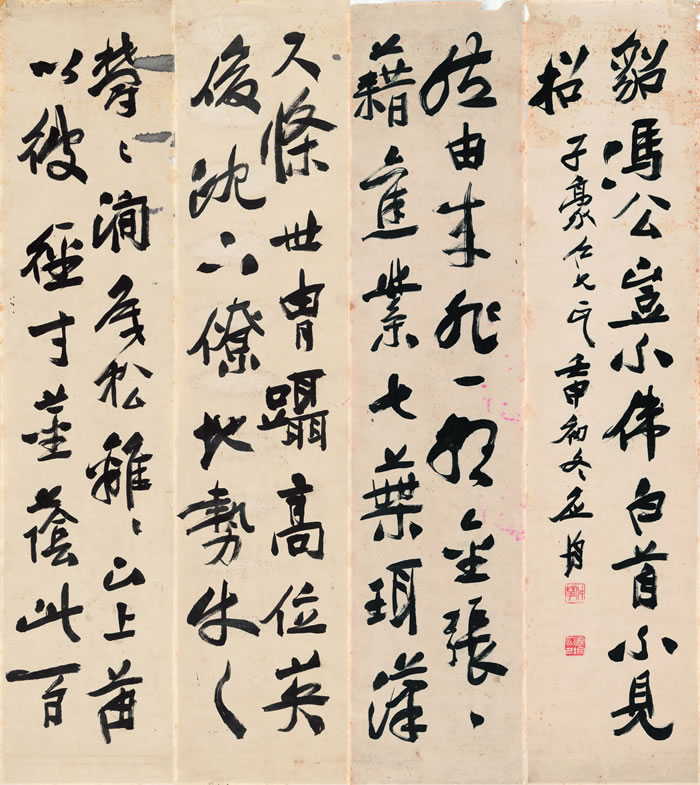 鬱〻澗底松離〻山上苗
以彼徑寸莖蔭此百
尺條世胄躡高位英
俊沈下僚地勢使之
然由來非一朝金張〻
藉舊業七葉珥漢
貂馮公豈不偉白首不見
招
子豪仁兄 壬申初冬